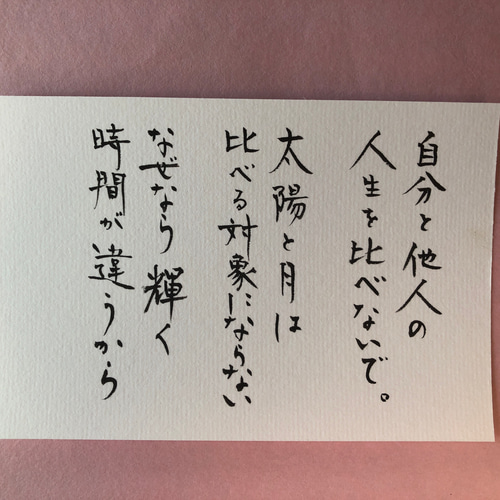 自分と他人の
人生を比べないで。
太陽と月は
比べる対象にならない
なぜなら輝く
時間が違うから